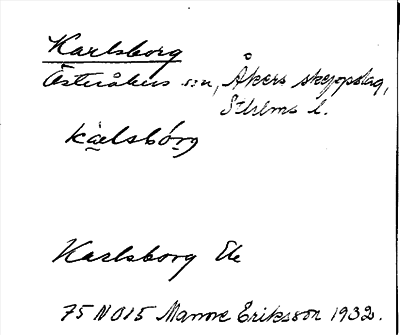 Karlsborg
Österåkers s:n, Åkers skeppslag,
Sthlms l.
kàlsbórg
Karlsborg Eb
75 NO 15 Manne Eriksson 1932.